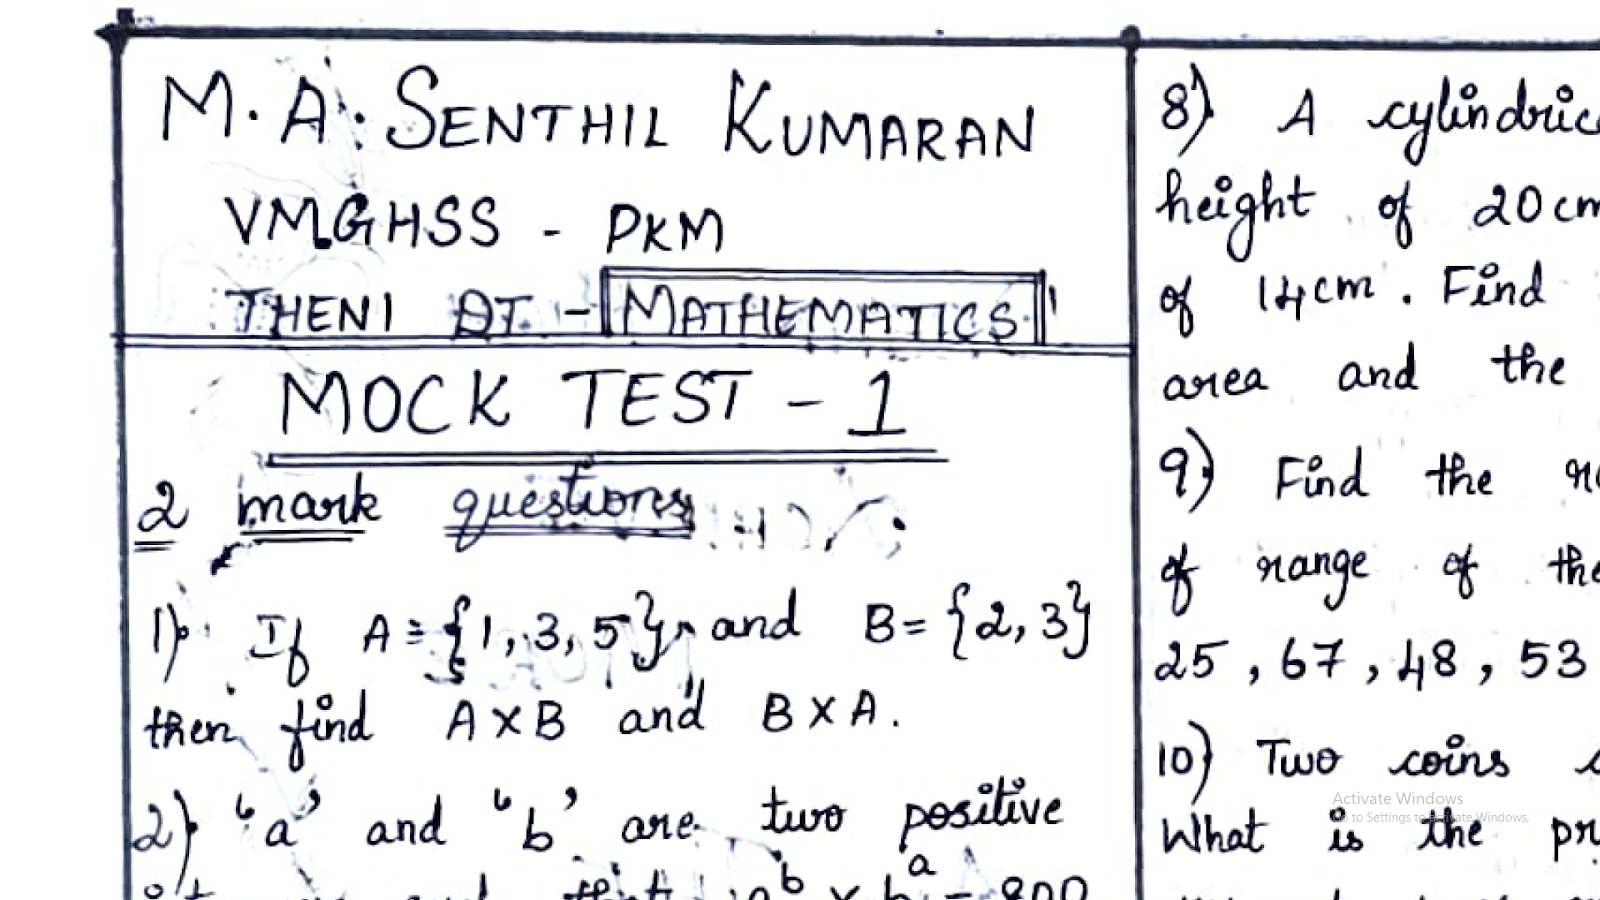 M. A. SENTHIL KUMARAN
VMGHSS - PKM
THENI DT - MATHEMATICS
MOCK TEST - 1
2 mark questions
1) If A = {1, 3, 5} and B = {2, 3}
then find A X B and B X A.
2) 'a' and 'b' are two positive
that a^b x b^a = 800
8) A
height of 20cm
of 14cm. Find
area and the
9) Find the
of range of
25, 67, 48, 53
10) Two coins
What is the
Activate Windows
to Settings to activate Windows.